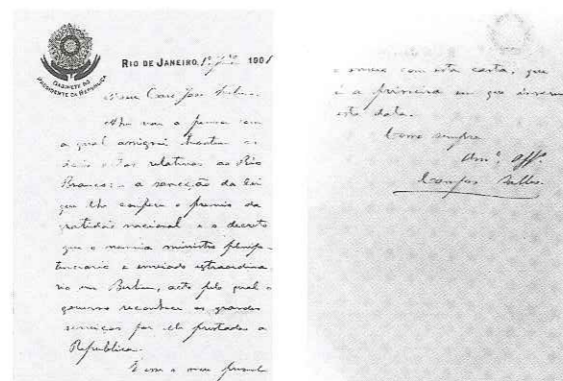 GABINETE DO
PRESIDENTE DA REPUBLICA
RIO DE JANEIRO, 1º 1901
Meu Caro José
Ahi vai a penna com
a qual assignei hontem os
dois actos relativos ao Rio
Branco: a sancção da lei
que lhe confere o premio da
gratidão nacional e o decreto
que o nomeia ministro plenipo-
tenciario e enviado extraordina
rio em Berlim, acto pelo qual o
governo reconhece os grandes
serviços por elle prestados a
Republica.
É esse o meu
e com esta carta, que
é a primeira em que
esta data.
Como sempre
Amº. Affº.
Campos Salles